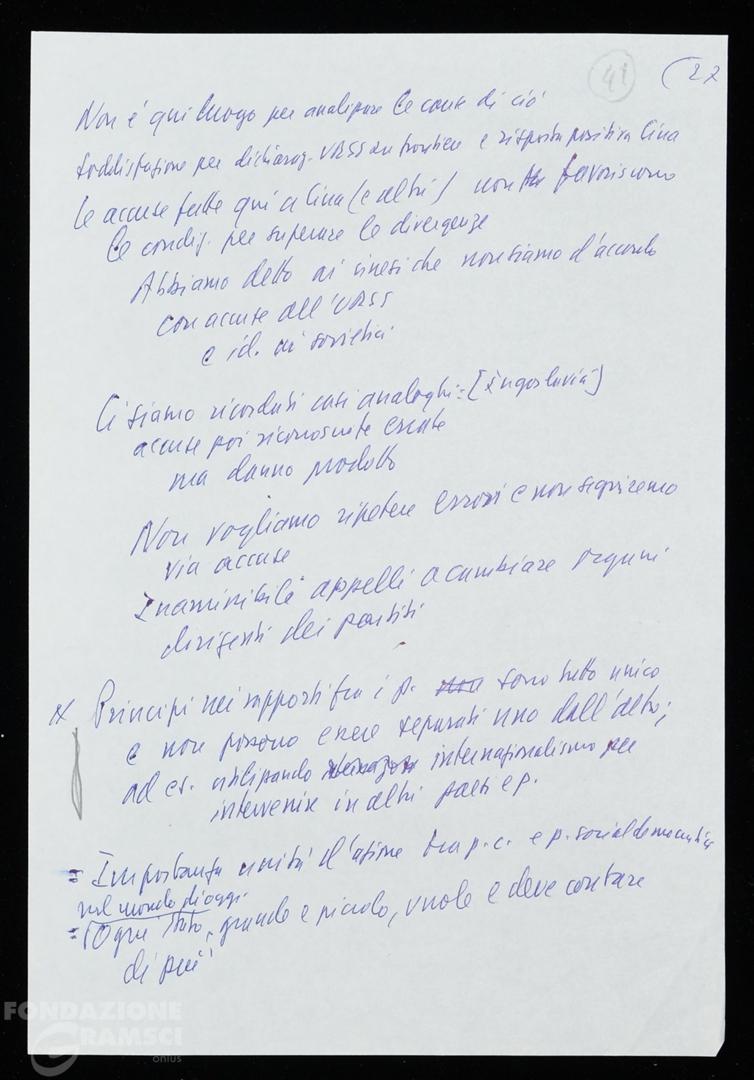 41 (22
Non è qui luogo per analizzare le cause di ciò
Soddisfazione per dichiaraz. URSS su frontiere e risposta positiva Cina
Le accuse fatte qui a Cina (e altri) non favoriscono
le condiz. per superare le divergenze
Abbiamo detto ai cinesi che non siamo d'accordo
con accuse all'URSS
e id. ai sovietici
Ci siamo ricordati casi analoghi: [Iugoslavia]
accuse poi riconosciute errate
ma danno prodotto
Non vogliamo ripetere errori e non seguiremo
via accuse
Inammissibile appelli a cambiare organi
dirigenti dei partiti
x Principi nei rapporti fra i p. non sono tutto unico
e non possono essere separati uno dall'altro;
ad es. utilizzando internazionalismo per
intervenire in altri paesi e p.
= Importanza unità d'azione tra p.c. e p. socialdemocratici
nel mondo di oggi
= Ogni Stato, grande e piccolo, vuole e deve contare
di più
FONDAZIONE
GRAMSCI
onlus